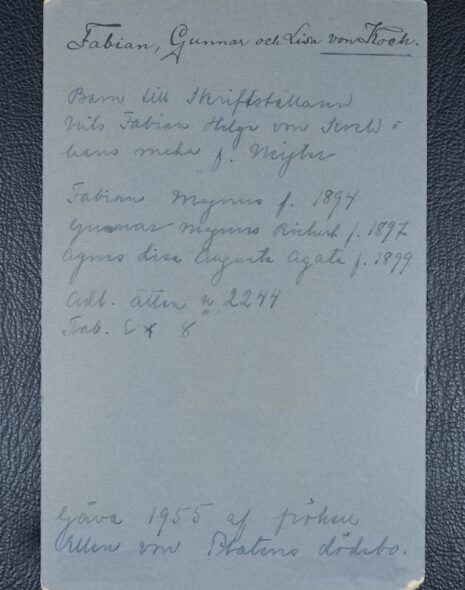 Fabian, Gunnar och Lisa von Koch.
Barn till Skriftställaren
Nils Fabian Helge von Koch i
hans f.
Fabian Magnus f. 1894
Gunnar Magnus Rickert f. 1897
Agnes Lisa Augusta Agata f. 1899
Adl. ätten n 2244
Tab. 8
Gåva 1955 af fröken
Ellen von Platens dödsbo.